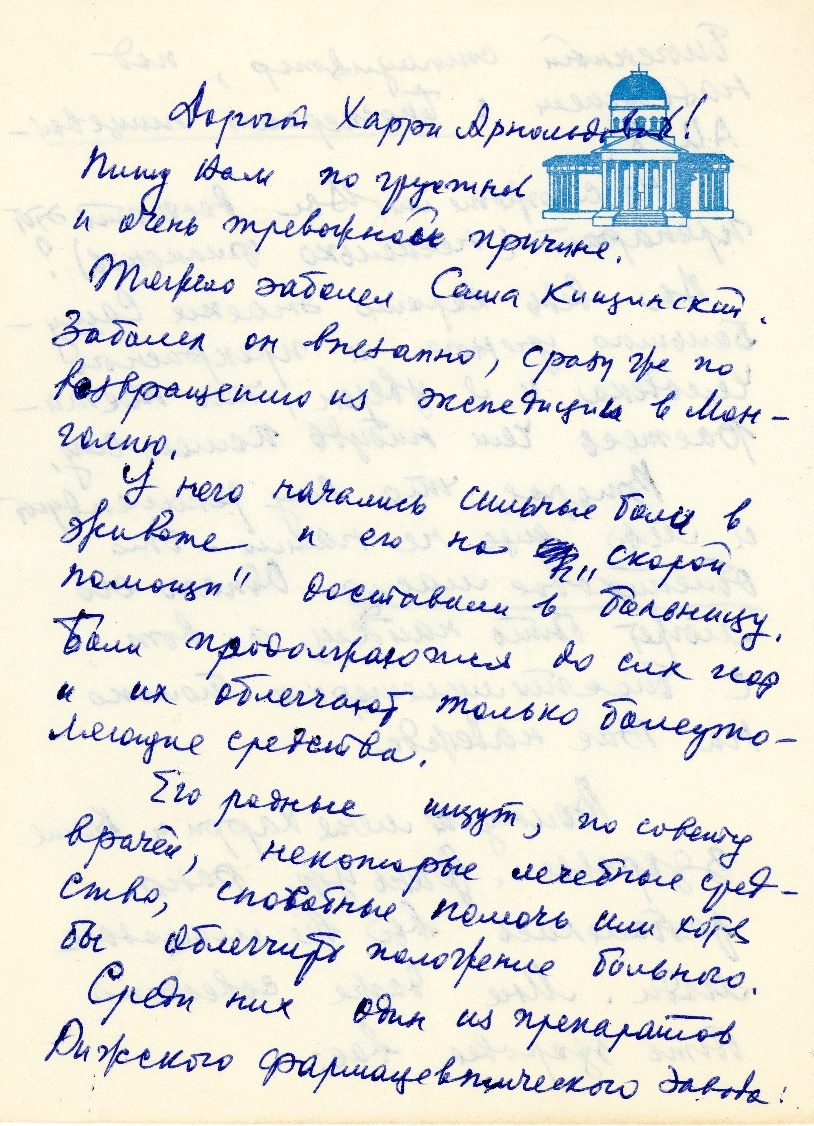 Дорогой Харри Арнольдович!
Пишу Вам по грустной
и очень тревожной причине.
Тяжело заболел Саша Кищинский.
Заболел он внезапно, сразу же по
возвращению из экспедиции в Мон-
голию.
У него начались сильные боли в
животе и его на „скорой
помощи" доставили в больницу.
Боли продолжаются до сих пор
и их облегчают только болеуто-
ляющие средства.
Его родные ищут, по совету
врачей, некоторые лечебные сред-
ства, способные помочь или хотя
бы облегчить положение больного.
Среди них один из препаратов
Рижского фармацевтического завода: